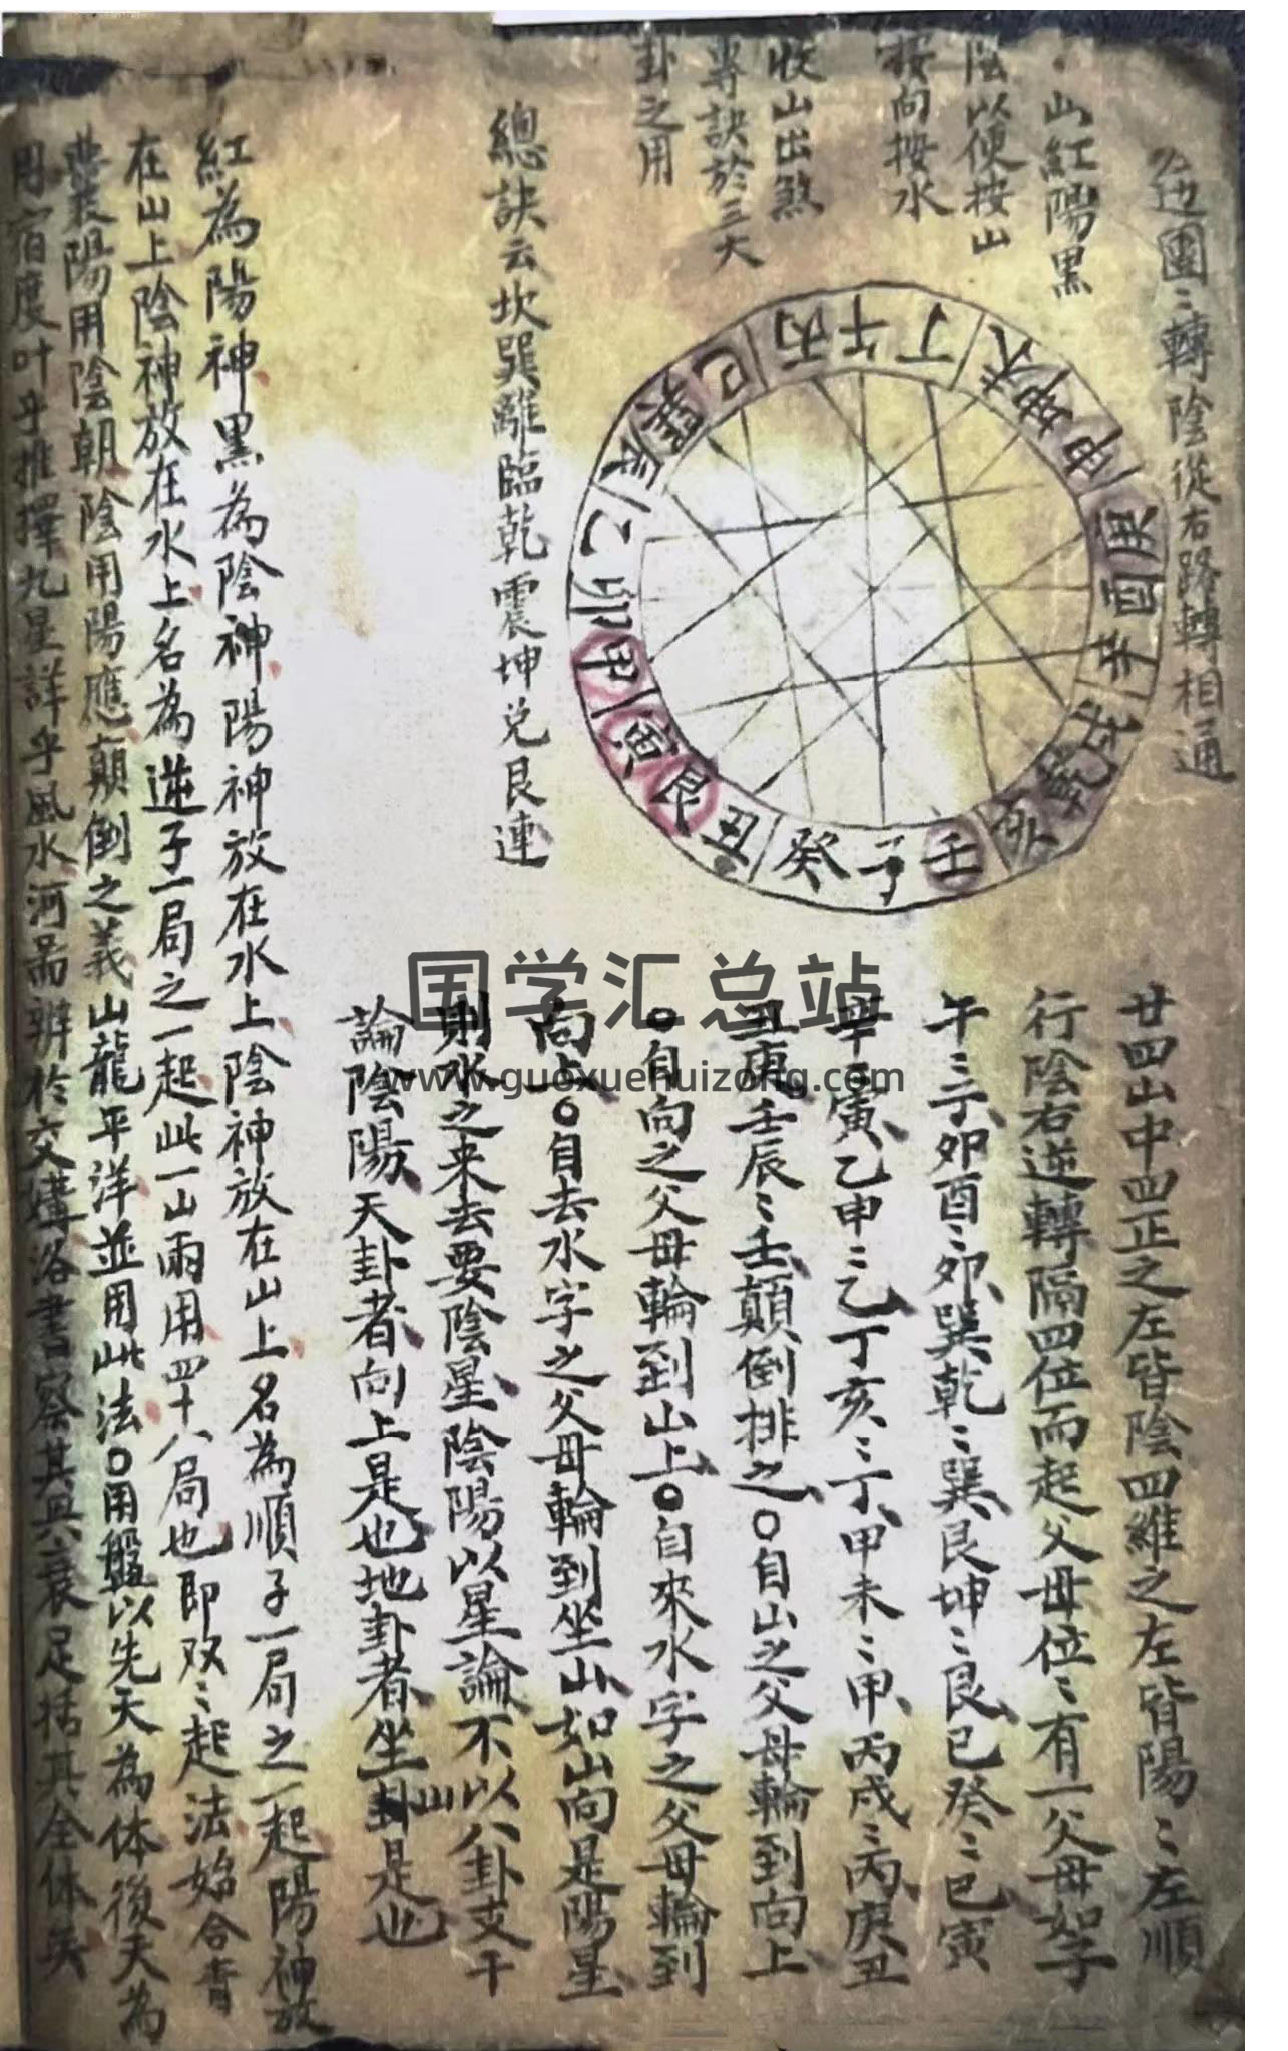 边團〻轉陰從右路轉相通
山紅陽黑
陰以便按山
按向按水
收山出煞
專訣於三大
卦之用
總訣云坎巽離臨乾震坤兌艮連
丙午丁未坤申庚酉辛戌乾亥壬子癸丑艮寅甲卯乙辰巽巳
廿四山中四正之左皆陰四維之左皆陽〻左順
行陰右逆轉隔四位而起父母位〻有一父母如子
午〻子卯酉〻卯巽乾〻巽艮坤〻艮巳癸〻巳寅
辛〻寅乙申〻乙丁亥〻丁甲未〻甲丙戌〻丙庚丑
丑庚壬辰〻壬顛倒排之〇自山之父母輪到向上
〇自向之父母輪到山上〇自來水字之父母輪到
向上〇自去水字之父母輪到坐山如山向是陽星
則水之来去要陰星陰陽以星論不以八卦支干
論陰陽天卦者向上是也地卦者坐山卦是也
紅為陽神黑為陰神陽神放在水上陰神放在山上名為順子一局之一起陽神放
在山上陰神放在水上名為逆子一局之一起此一山兩用四十八局也即双〻起法始合青
囊裝陽用陰朝陰用陽應顛倒之義山龍平洋並用此法〇用盤以先天為体後天為
用宿度叶乎推擇九星詳乎風水河啚辨於交媾洛書察其興衰足括其全体矣
国学汇总站
www.guoxuehuizong.com